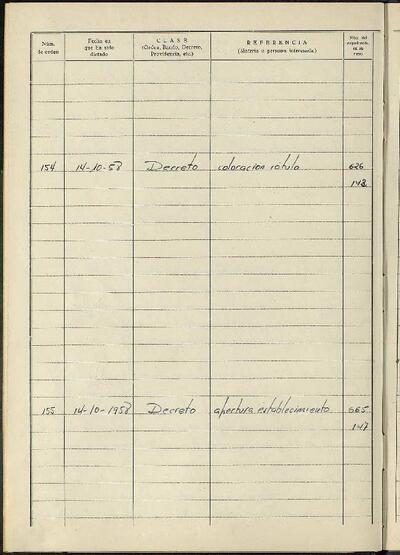 Núm. de orden
Fecha en que ha sido dictado
CLASE (Orden, Bando, Decreto, Providencia, etc.)
REFERENCIA (Materia o persona interesada)
Núm. del expediente, en su caso
154 14-10-58 Decreto colocacion rótulo 626
143
155 14-10-1958 Decreto apertura establecimiento 665
147